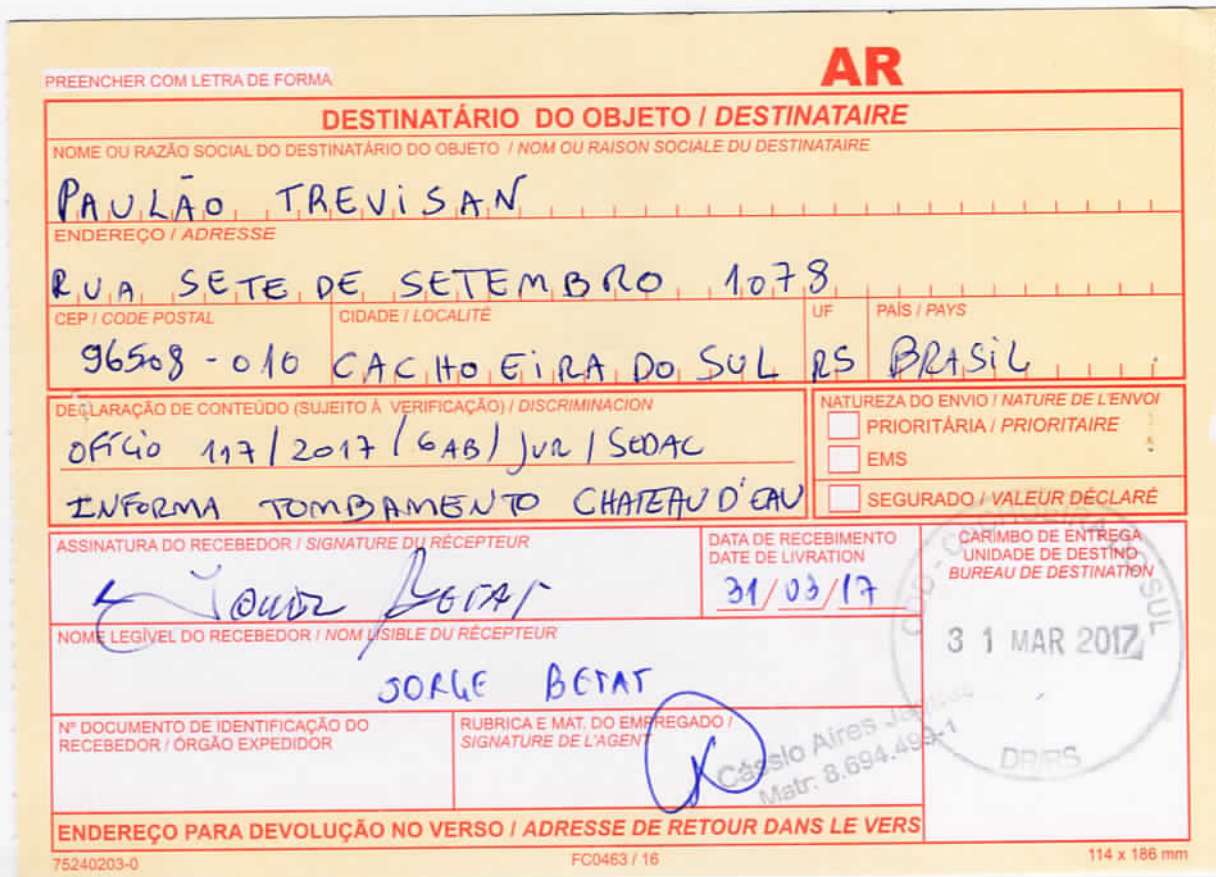 PREENCHER COM LETRA DE FORMA
AR
DESTINATÁRIO DO OBJETO / DESTINATAIRE
NOME OU RAZÃO SOCIAL DO DESTINATÁRIO DO OBJETO / NOM OU RAISON SOCIALE DU DESTINATAIRE
PAULÃO TREViSAN
ENDEREÇO / ADRESSE
RUA SETE DE SETEMBRO 1078
CEP / CODE POSTAL CIDADE / LOCALITÉ UF PAÍS / PAYS
96508-010 CACHOEiRA DO SUL RS BRASiL
DECLARAÇÃO DE CONTEÚDO (SUJEITO À VERIFICAÇÃO) / DISCRIMINACION
OFÍCIO 117/2017/GAB/JUR/SEDAC
INFORMA TOMBAMENTO CHATEAU D'EAU
NATUREZA DO ENVIO / NATURE DE L'ENVOI
PRIORITÁRIA / PRIORITAIRE
EMS
SEGURADO / VALEUR DÉCLARÉ
ASSINATURA DO RECEBEDOR / SIGNATURE DU RÉCEPTEUR
DATA DE RECEBIMENTO
DATE DE LIVRATION
31/03/17
CARIMBO DE ENTREGA
UNIDADE DE DESTINO
BUREAU DE DESTINATION
CDD - CACHOEIRA DO SUL
31 MAR 2017
DR/RS
NOME LEGÍVEL DO RECEBEDOR / NOM LISIBLE DU RÉCEPTEUR
JORGE BETAT
Nº DOCUMENTO DE IDENTIFICAÇÃO DO
RECEBEDOR / ÓRGÃO EXPEDIDOR
RUBRICA E MAT. DO EMPREGADO /
SIGNATURE DE L'AGENT
Cássio Aires
Matr: 8.694.499-1
ENDEREÇO PARA DEVOLUÇÃO NO VERSO / ADRESSE DE RETOUR DANS LE VERS
75240203-0 FC0463 / 16 114 x 186 mm